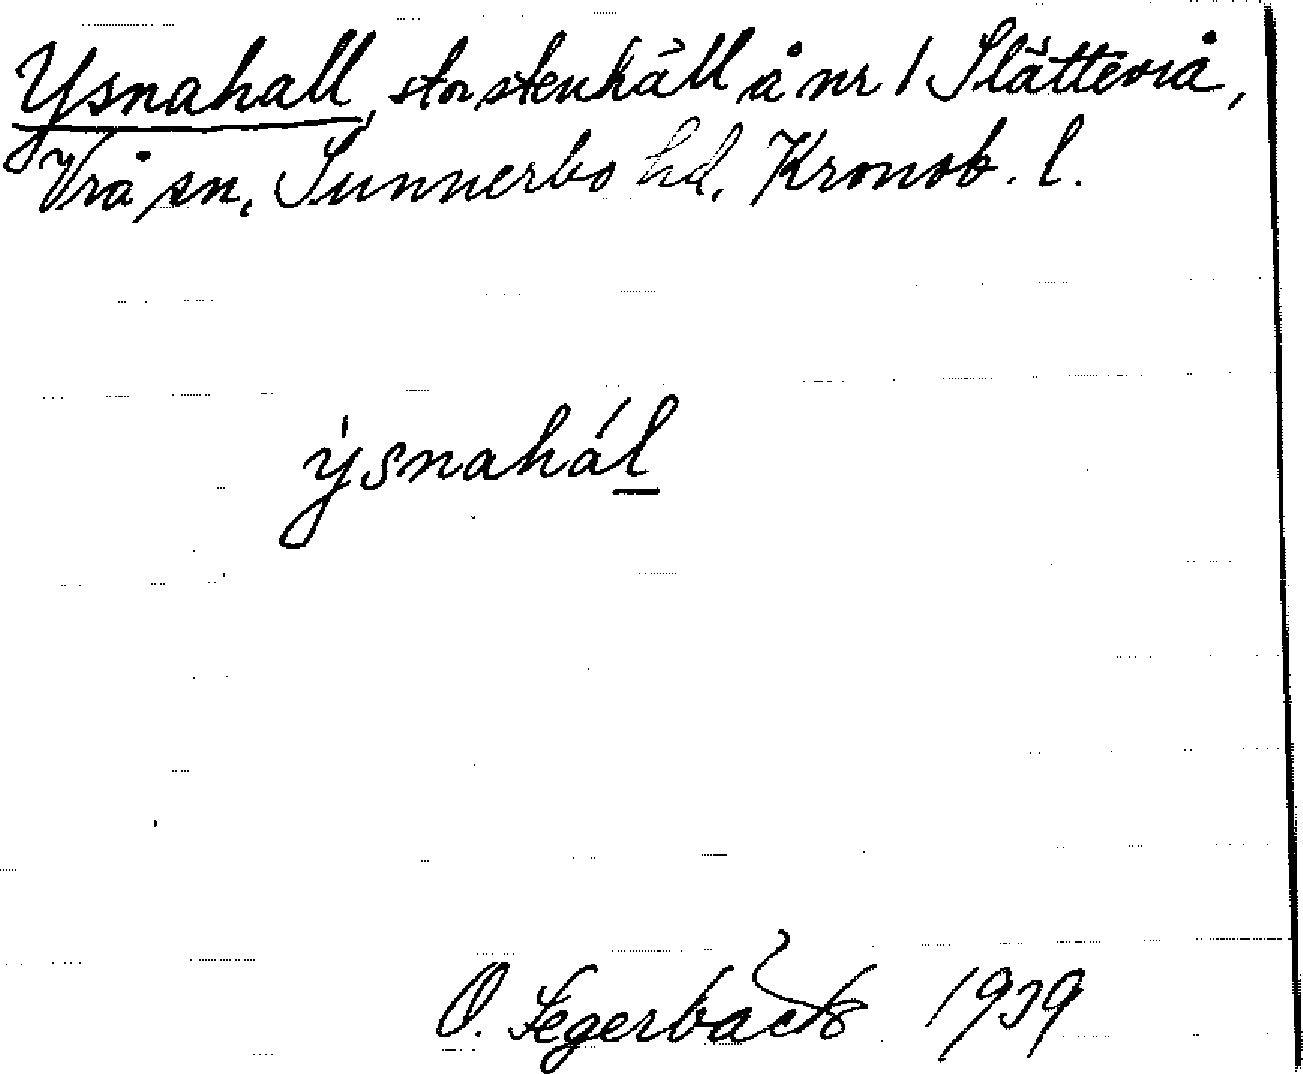 Ysnahall, stor stenhäll å nr 1 Slättevrå,
Vrå sn, Sunnerbo hd, Kronob. l.
ýsnahál
O. Segerbäck 1939